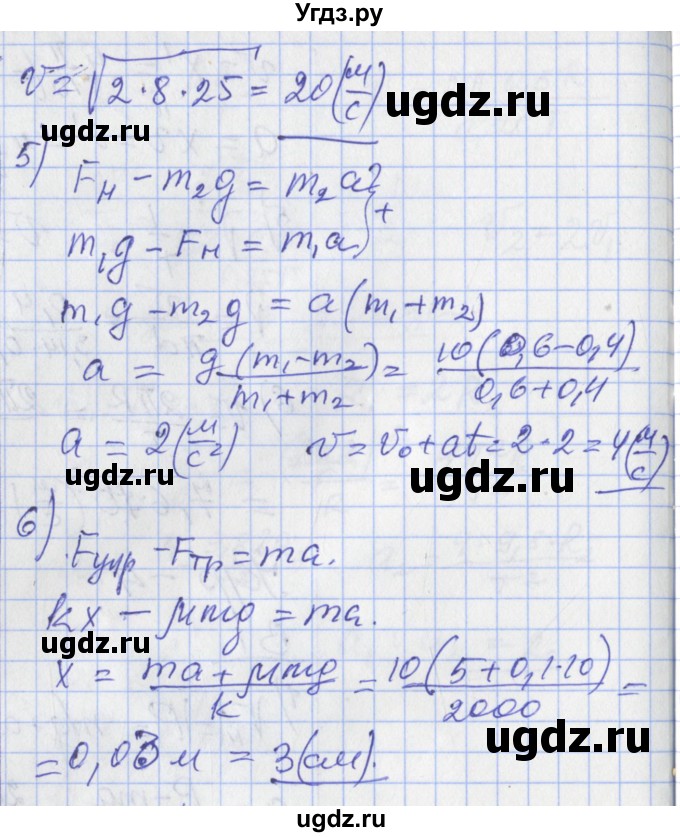 Угдз.ру
v = √2·8·25 = 20 (м/с)
ugdz.ru
ugdz.ru
5) Fн − m₂g = m₂a
ugdz.ru
m₁g − Fн = m₁a } +
m₁g − m₂g = a(m₁+m₂)
a = g(m₁−m₂)/(m₁+m₂) = 10(0,6−0,4)/(0,6+0,4)
ugdz.ru
ugdz.ru
a = 2 (м/с²) v = v₀ + at = 2·2 = 4 (м/с)
ugdz.ru
ugdz.ru
6) Fупр − Fтр = ma.
kx − μmg = ma.
ugdz.ru
x = (ma + μmg)/k = 10(5+0,1·10)/2000 =
ugdz.ru
ugdz.ru
= 0,03 м = 3 (см).
ugdz.ru
ugdz.ru